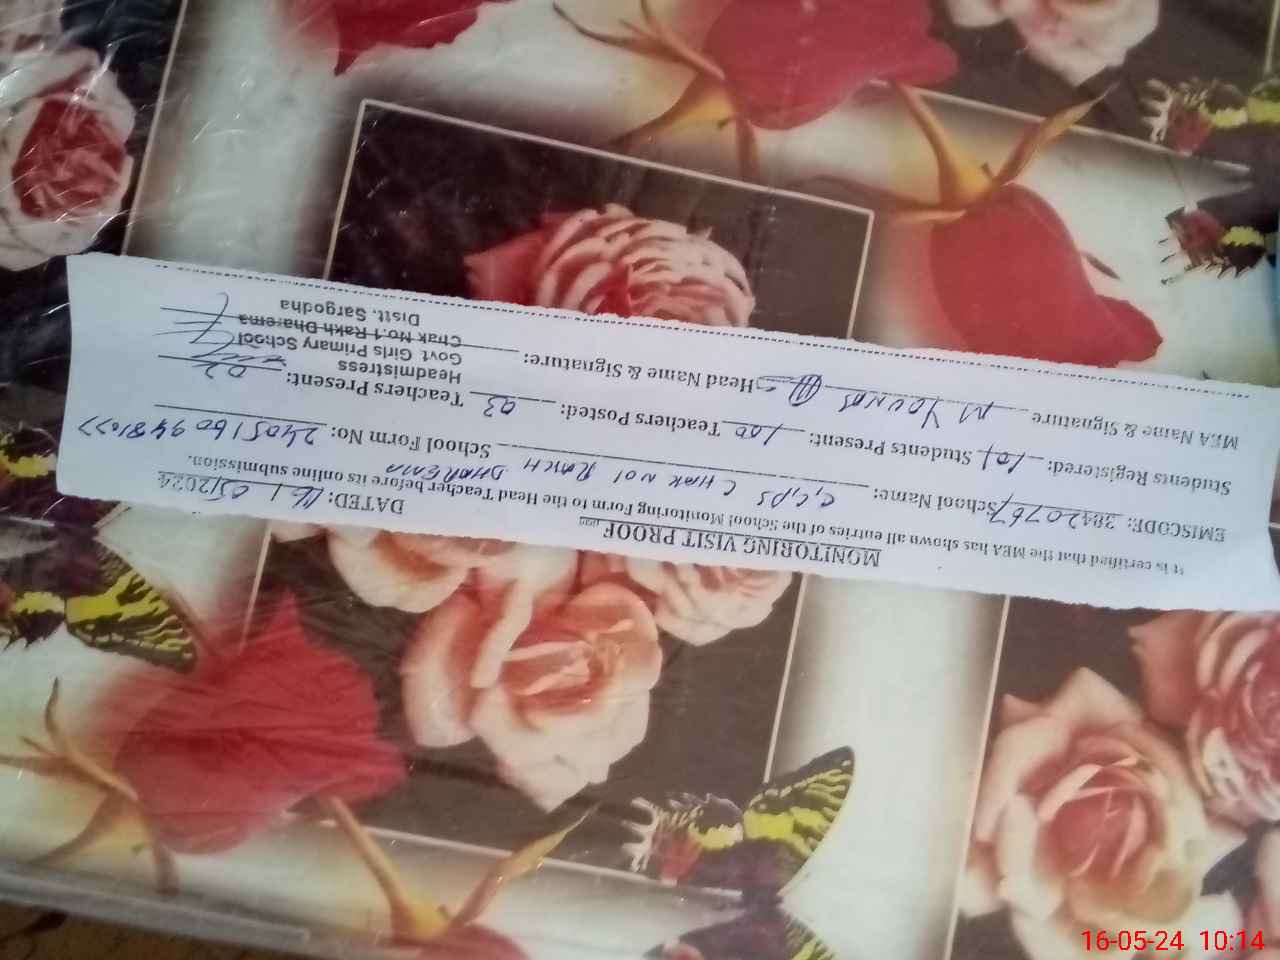 MONITORING VISIT PROOF
DATED: 16 / 05/2024
It is certified that the MEA has shown all entries of the School Monitoring Form to the Head Teacher before its online submission.
EMISCODE: 38420767 School Name: GGPS CHAK NO1 RAKH DHAREMA School Form No:
Students Registered: 101 Students Present: 100 Teachers Posted: 03 Teachers Present: 02
MEA Name & Signature M YOUNAS Head Name & Signature:
Headmistress
Govt. Girls Primary School
Chak No.1 Rakh Dharema
Distt. Sargodha
16-05-24 10:14